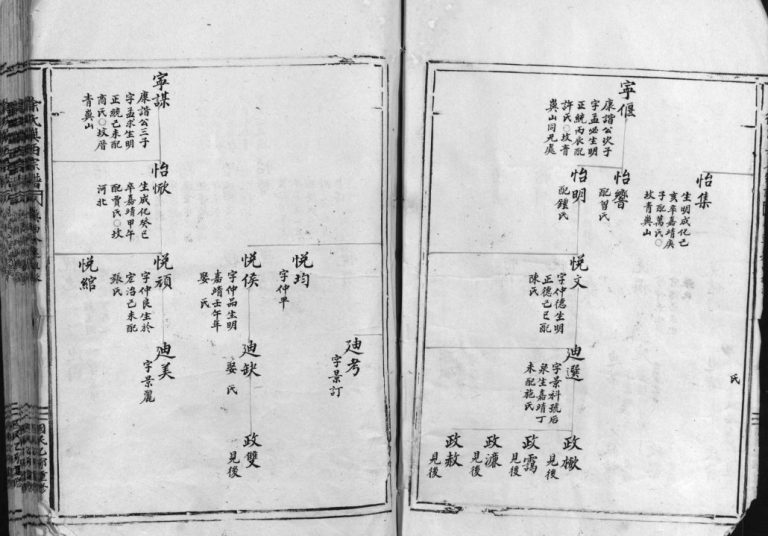 怡集
生明成化己
亥卒嘉靖庚
子配萬氏○
坟青奐山
氏
寧偃
康譜公次子
字孟必生明
正統丙辰配
許氏○坟青
奐山同兄處
怡響
配習氏
怡明
配鍾氏
悦文
字仲德生明
正德己巳配
陳氏
迪選
字景科號后
泉生嘉靖丁
未配施氏
政楸
見後
政靄
見後
政濂
見後
政赦
見後
悦均
字仲平
迪考
字景訂
寧謀
康譜公三子
字孟求生明
正統己未配
商氏○坟厝
青奐山
怡惞
生成化癸巳
卒嘉靖甲午
配賈氏○坟
河北
悦侯
字仲品生明
嘉靖壬午年
娶 氏
迪缺
娶 氏
政雙
見後
悦頑
字仲良生於
宏治己未配
張氏
迪美
字景麗
悦綰